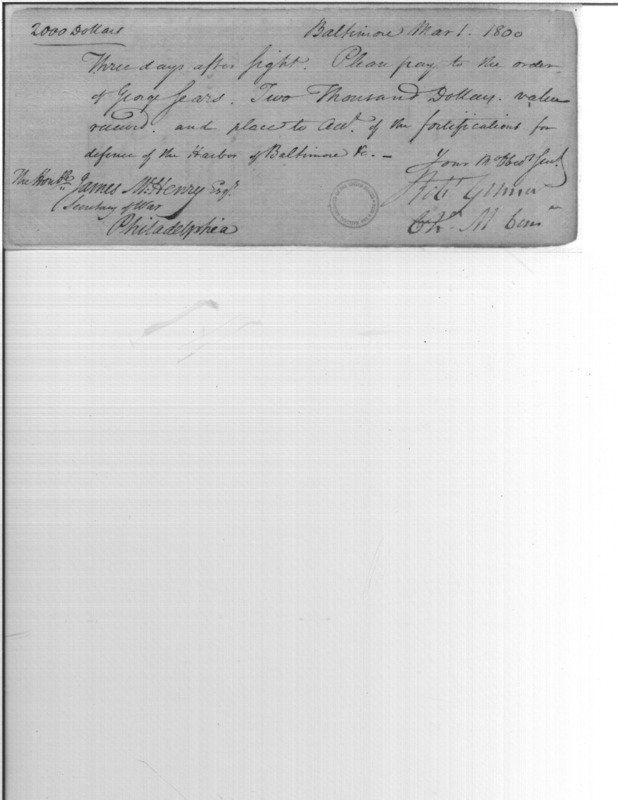 2000 Dollars
Baltimore Mar 1. 1800
Three days after sight. Please pay to the order
of George Sears. Two Thousand Dollars. value
received. and place to Acct. of the fortifications for
defense of the Harbor of Baltimore &c. —
Your Most Obedt Servt
The Honble James McHenry Esqr.
Secretary of War
Philadelphia
Robt Gilmor